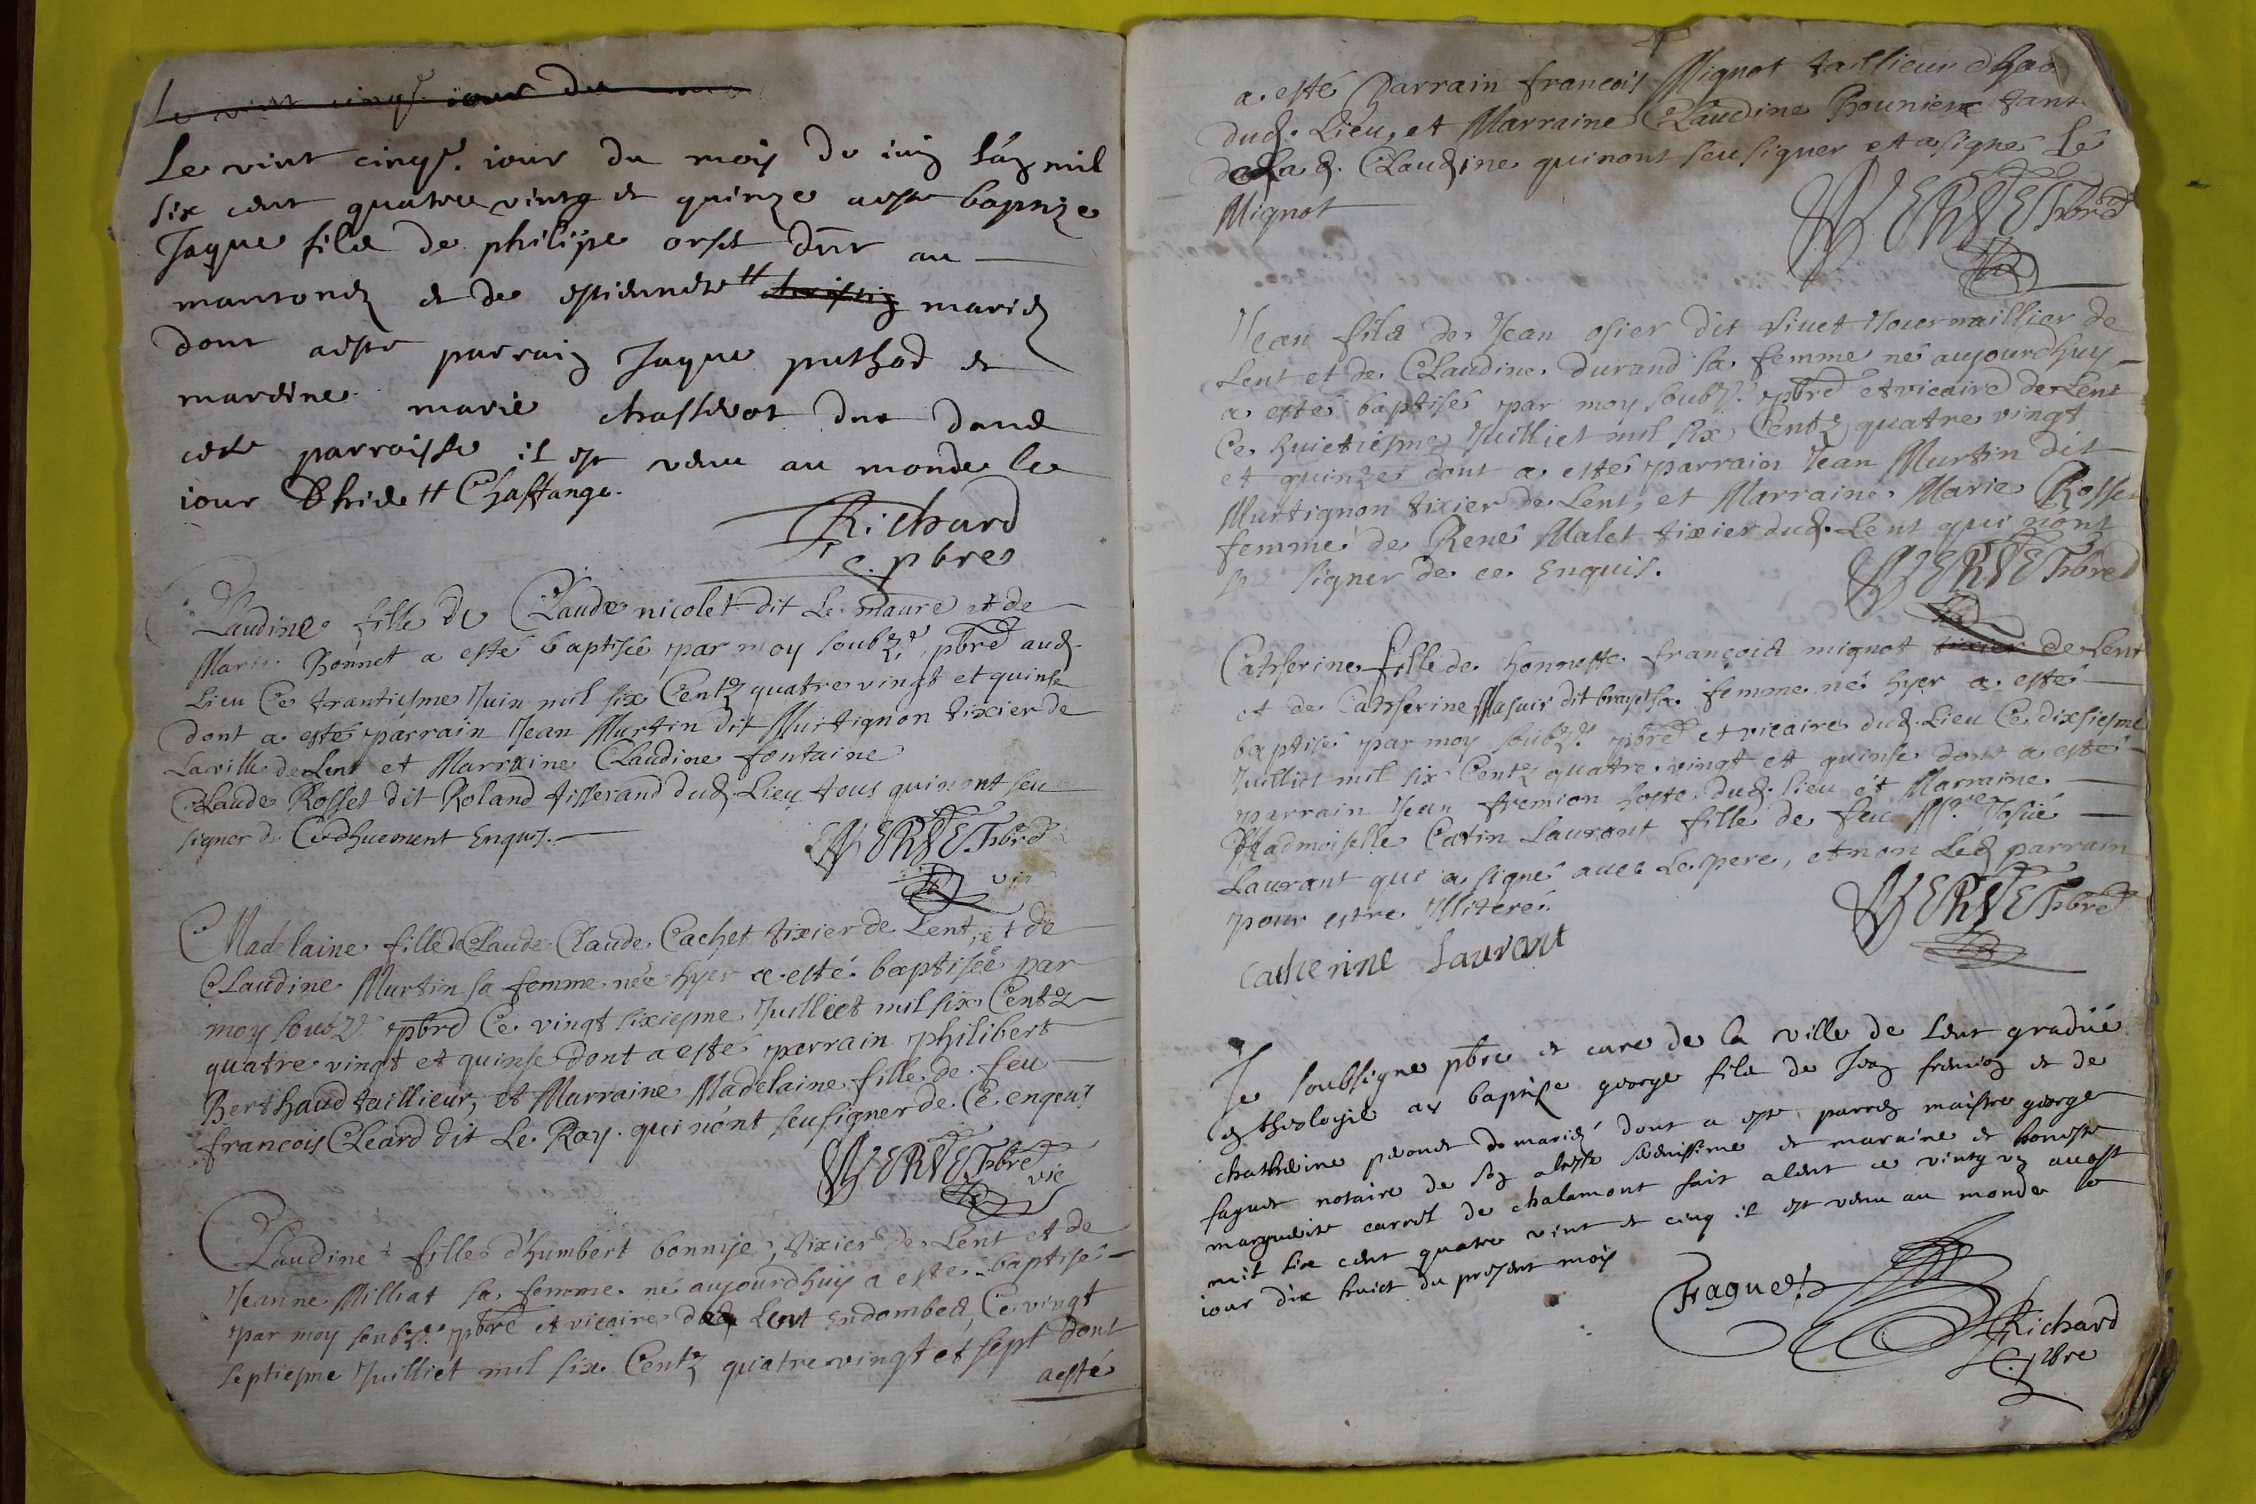 Le vint cinq.e jour du mois
Le vint cinq.e iour du moys de iuin l'ã mil
six cent quatre vintg et quinze a este baptize
Jaque fils de philipe orset dnt au
mantonez et de estiennete " mariez
dont a este parrain Jaque puthod et
mareine marie chassevot dnt dans
ceste parroisse il est venu au monde le
iour d'hier " Chastange.
Richard
c. pbre
Claudine fille de Claude nicolet dit Le maure et de
Marie Bonnet a esté baptisée par moy soubz.é pbre aud.
Lieu Ce trantiesme Juin mil six Centz quatre vingt et quinse
dont a esté parrain Jean Murtin dit Murtignon tixier de
La ville de Lent et Marraine Claudine fontaine
Claude Rosset dit Roland tisserand dud. Lieu tous qui n'ont seu
signer de Ce dhuement Enquis.
VERNE Pbre
vic
Madelaine fille de Claude Claude Cachet tixier de Lent, et de
Claudine Murtin sa femme née hyer a esté baptisée par
moy soubz.é pbre Ce vingt sixiesme Juilliet mil six Centz
quatre vingt et quinse dont a esté parrain philibert
Berthaud taillieur, et Marraine Madelaine fille de feu
francois Cleard dit Le Ray qui n'ont seu signer de Ce enquis
VERNE Pbre
vic
Claudine fille d'humbert bonnye, tixier de Lent et de
Jeanne Milliat sa femme né aujourdhuy a esté baptisé
par moy soubz.é pbre et vicaire de Lent en dombes, Ce vingt
septiesme Juilliet mil six Centz quatre vingt et sept dont
a esté
a esté Parrain francois Mignot taillieur d'hab
dud. Lieu, et Marraine Claudine tant
de lad. Claudine qui n'ont seu signer et a signé Le
Mignot
VERNE Pbre
Jean fils de Jean osier dit vivet Journaillier de
Lent et de Claudine durand sa femme né aujourdhuy
a esté baptisé par moy soubz.é pbre et vicaire de Lent
Ce huietiesme Juilliet mil six Centz quatre vingt
et quinze dont a esté parrain Jean Murtin dit
Murtignon tixier de Lent, et Marraine Marie Rosset
femme de René Malet tixier dud. Lent qui n'ont
signer de ce Enquis.
VERNE Pbre
Catherine fille de honneste françois mignot tixier de Lent
et de Catherine Masuir dit brayet sa femme né hyer a esté
baptisé par moy soubz.é pbre et vicaire dud. Lieu Ce dixsiesme
Juilliet mil six Centz quatre vingt et quinse dont a esté
parrain Jean fremion hoste dud. lieu et Marraine
Madmoiselle Catin Laurant fille de feu M.re Josué
Laurant qui a signé avec Le pere, et non Led. parrain
pour estre Illiteré.
VERNE Pbre
Catherine Laurant
Je soubsigne pbre et cure de la ville de Lent gradué
en theologie ay baptise george fils de Jean fremion et de
chatherine peonet mariez dont a este parrez maistre george
faguet notaire de son altesse serenissime et maraine et honeste
marguerite carrel de chalamont fait a lent ce vintg un auost
mil six cent quatre vint et cinq il est venu au monde le
iour dix huict du present mois
Faguet
Richard
C. pbre